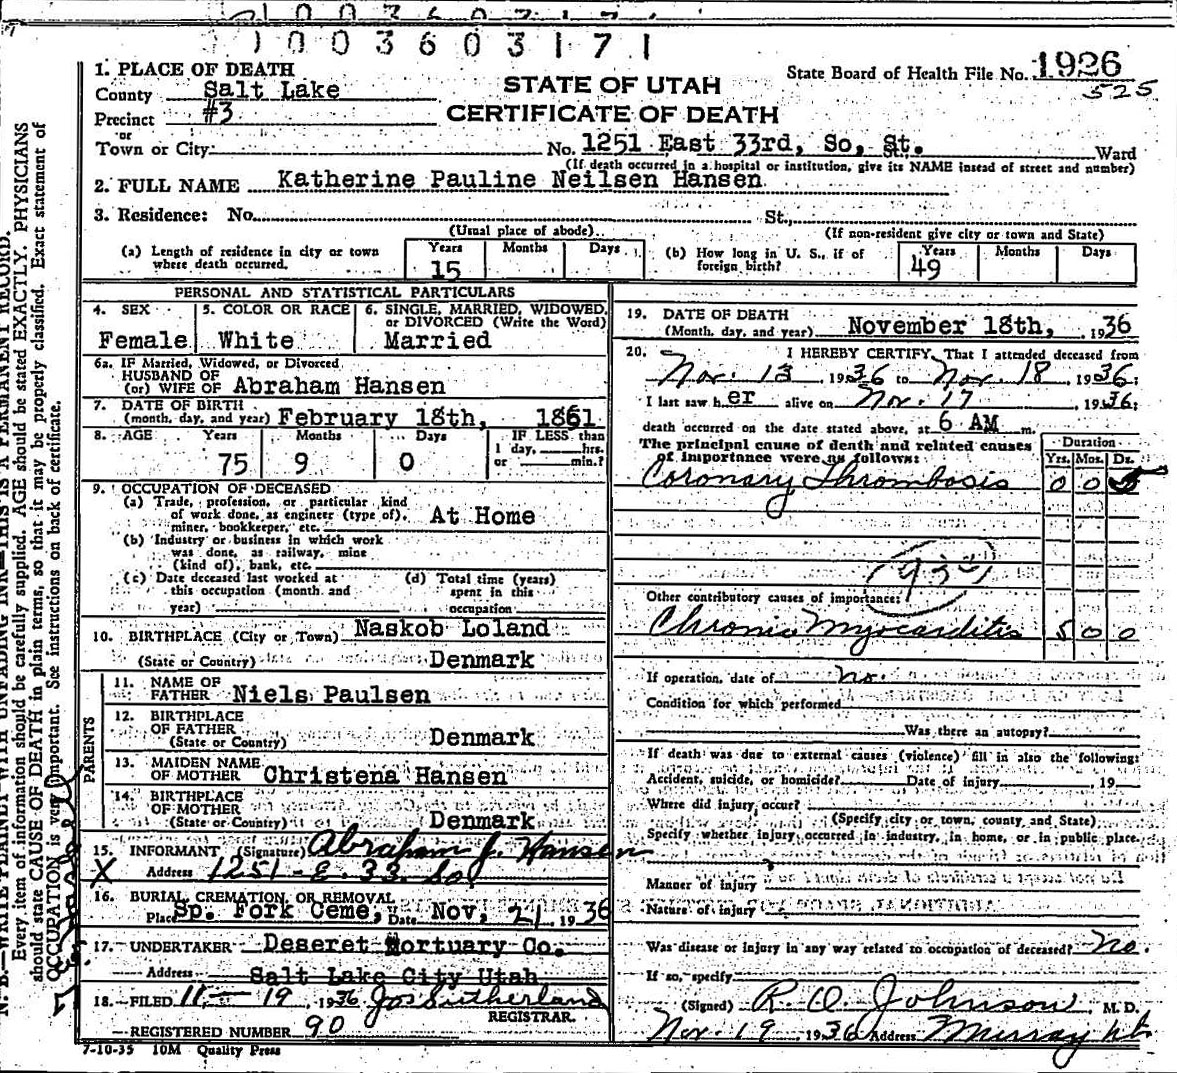 1003603171
1. PLACE OF DEATH
County Salt Lake
Precinct #3
or
Town or City
STATE OF UTAH
CERTIFICATE OF DEATH
State Board of Health File No. 1926
525
No. 1251 East 33rd, So, St. Ward
(If death occurred in a hospital or institution, give its NAME insead of street and number)
2. FULL NAME Katherine Pauline Neilsen Hansen
3. Residence: No. St.,
(Usual place of abode) (If non-resident give city or town and State)
(a) Length of residence in city or town where death occurred. Years 15 Months Days
(b) How long in U. S., if of foreign birth? Years 49 Months Days
PERSONAL AND STATISTICAL PARTICULARS
4. SEX Female
5. COLOR OR RACE White
6. SINGLE, MARRIED, WIDOWED, or DIVORCED (Write the Word) Married
6a. IF Married, Widowed, or Divorced
HUSBAND OF
(or) WIFE OF Abraham Hansen
7. DATE OF BIRTH
(month, day, and year) February 18th, 1861
8. AGE Years 75 Months 9 Days 0
IF LESS than
1 day, hrs.
or min.?
9. OCCUPATION OF DECEASED
(a) Trade, profession, or particular kind
of work done, as engineer (type of),
miner, bookkeeper, etc. At Home
(b) Industry or business in which work
was done, as railway, mine
(kind of), bank, etc.
(c) Date deceased last worked at
this occupation (month and
year)
(d) Total time (years)
spent in this
occupation
10. BIRTHPLACE (City or Town) Naskob Loland
(State or Country) Denmark
PARENTS
11. NAME OF
FATHER Niels Paulsen
12. BIRTHPLACE
OF FATHER
(State or Country) Denmark
13. MAIDEN NAME
OF MOTHER Christena Hansen
14. BIRTHPLACE
OF MOTHER
(State or Country) Denmark
15. INFORMANT (Signature) Abraham J. Hansen
X Address 1251 - E. 33. So
16. BURIAL CREMATION OR REMOVAL
Place Sp. Fork Ceme, Date Nov, 21, 1936
17. UNDERTAKER Deseret Mortuary Co.
Address Salt Lake City Utah
18. FILED 11 - 19, 1936 Jos Sutherland
REGISTRAR.
REGISTERED NUMBER 90
7-10-35 10M Quality Press
19. DATE OF DEATH
(Month, day, and year) November 18th, 1936
20. I HEREBY CERTIFY, That I attended deceased from
Nov. 13, 1936 to Nov. 18, 1936;
I last saw her alive on Nov. 17, 1936;
death occurred on the date stated above, at 6 AM m.
The principal cause of death and related causes
of importance were as follows:
Duration
Yrs. Mos. Ds.
Coronary Thrombosis 0 0 5
Other contributory causes of importance:
Chronic Myocarditis 5 0 0
If operation, date of no.
Condition for which performed
Was there an autopsy?
If death was due to external causes (violence) fill in also the following:
Accident, suicide, or homicide? Date of injury 19
Where did injury occur?
(Specify city or town, county and State)
Specify whether injury occurred in industry, in home, or in public place.
Manner of injury
Nature of injury
Was disease or injury in any way related to occupation of deceased? No.
If so, specify
(Signed) R. O. Johnson, M. D.
Nov. 19 1936 Address Murray Ut
N. B.—WRITE PLAINLY WITH UNFADING INK—THIS IS A PERMANENT RECORD.
Every item of information should be carefully supplied. AGE should be stated EXACTLY. PHYSICIANS
should state CAUSE OF DEATH in plain terms, so that it may be properly classified. Exact statement of
OCCUPATION is very important. See instructions on back of certificate.